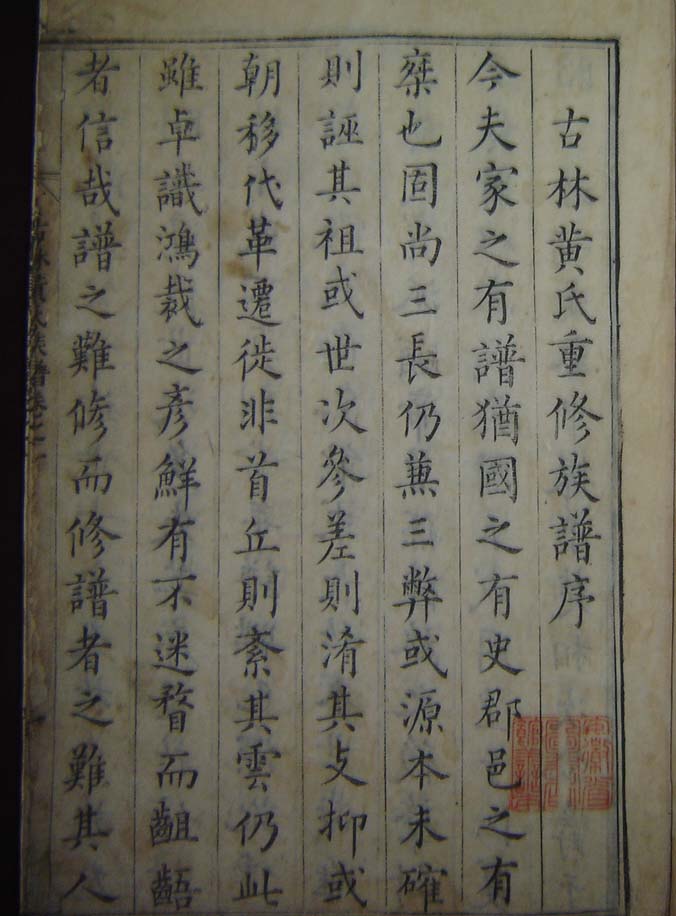 古林黄氏重修族譜序
今夫家之有譜猶國之有史郡邑之有
椉也固尚三長仍兼三弊或源本未確
則誣其祖或世次參差則淆其支抑或
朝移代革遷徙非首丘則紊其雲仍此
雖卓識鴻裁之彥鮮有不迷瞀而齟齬
者信哉譜之難修而修譜者之難其人
林黄氏族譜卷之